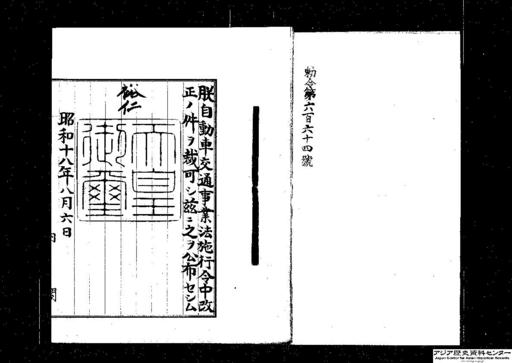 勅令第六百六十四號
朕自動車交通事業法施行令中改
正ノ件ヲ裁可シ茲ニ之ヲ公布セシム
裕仁
天皇
御璽
昭和十八年八月六日
内閣
アジア歴史資料センター
Japan Center for Asian Historical Records